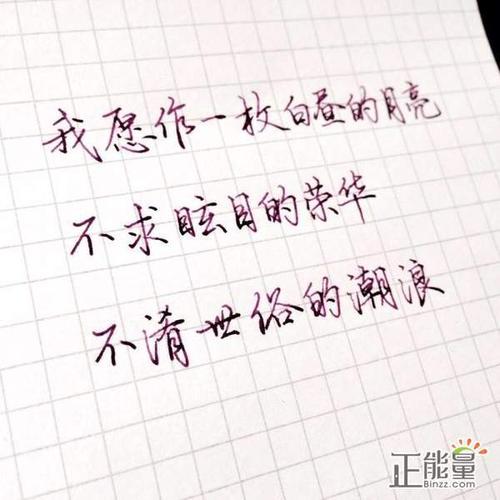 我愿作一枚白昼的月亮
不求眩目的荣华
不淆世俗的潮浪
正能量
Binzz.com